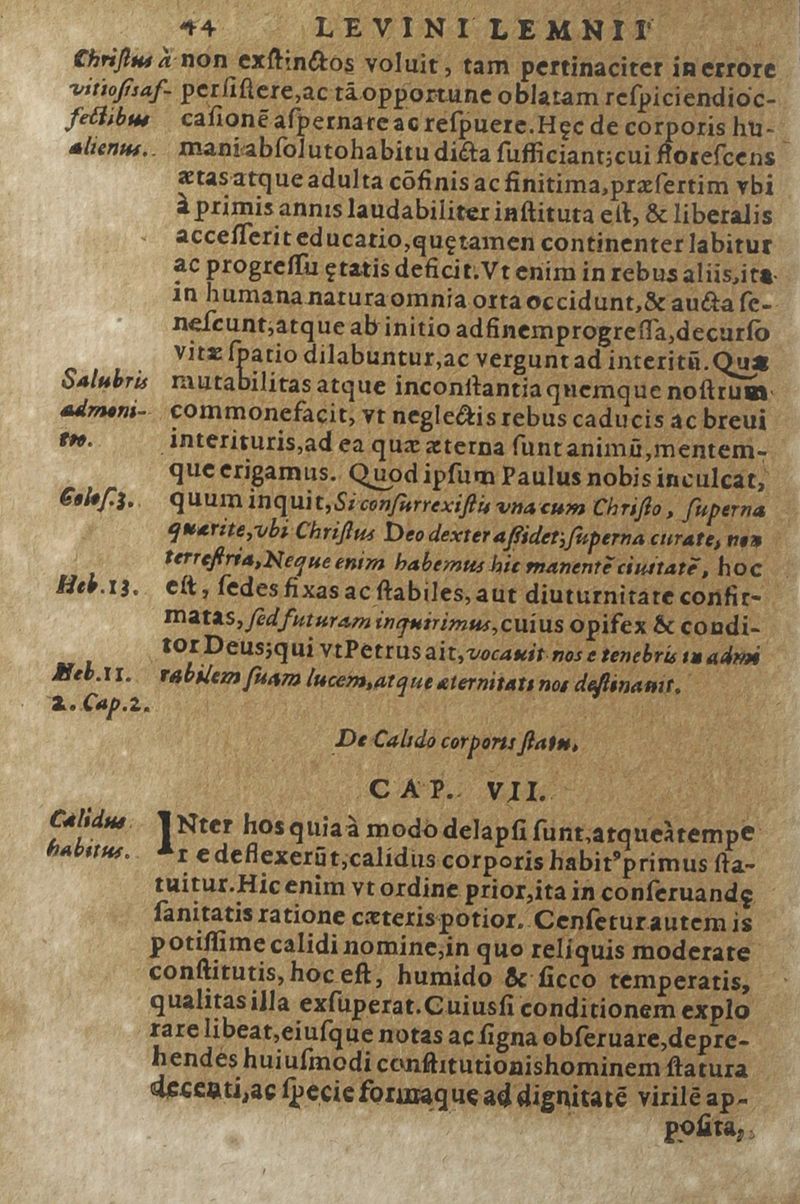 44 LEVINI LEMNII
Christus à non exſtinctos voluit, tam pertinaciter in errore
vitiosis af- perſiſtere,ac tā opportune oblatam reſpiciendi oc-
fectibus caſionē aſpernare ac reſpuere.Hęc de corporis hu-
alienus. mani abſoluto habitu dicta ſufficiant;cui floreſcens
ætas atque adulta cōfinis ac finitima,præſertim vbi
à primis annis laudabiliter inſtituta eſt, & liberalis
acceſſerit educatio,quę tamen continenter labitur
ac progreſſu ętatis deficit.Vt enim in rebus aliis,ita
in humana natura omnia orta occidunt,& aucta ſe-
neſcunt,atque ab initio ad finem progreſſa,decurſo
vitæ ſpatio dilabuntur,ac vergunt ad interitū.Quæ
Salubris mutabilitas atque inconſtantia quemque noſtrum
admoni- commonefacit, vt neglectis rebus caducis ac breui
tio. interituris,ad ea quæ æterna ſunt animū,mentem-
que erigamus. Quod ipſum Paulus nobis inculcat,
Coloſ.3. quum inquit,Si conſurrexiſtis vna cum Chriſto, ſuperna
quærite,vbi Chriſtus Deo dexter aſſidet;ſuperna curate, non
terreſtria,Neque enim habemus hic manentē ciuitatē, hoc
Heb.13. eſt, ſedes fixas ac ſtabiles, aut diuturnitate confir-
matas, ſed futuram inquirimus,cuius opifex & condi-
tor Deus;qui vt Petrus ait,vocauit nos e tenebris in admi
Heb.11. rabilem ſuam lucem,atque æternitati nos deſtinauit.
2. Cap.2.
De Calido corporis ſtatu,
CAP. VII.
Calidus INter hos quia à modo delapſi ſunt,atque à tempe
habitus. r e deflexerūt,calidus corporis habit⁹ primus ſta-
tuitur.Hic enim vt ordine prior,ita in conſeruandę
ſanitatis ratione cæteris potior. Cenſetur autem is
potiſſime calidi nomine,in quo reliquis moderate
conſtitutis, hoc eſt, humido & ſicco temperatis,
qualitas illa exſuperat.Cuiusſi conditionem explo
rare libeat,eiuſque notas ac ſigna obſeruare,depre-
hendes huiuſmodi conſtitutionis hominem ſtatura
decenti,ac ſpecie formaque ad dignitatē virilē ap-
poſita,